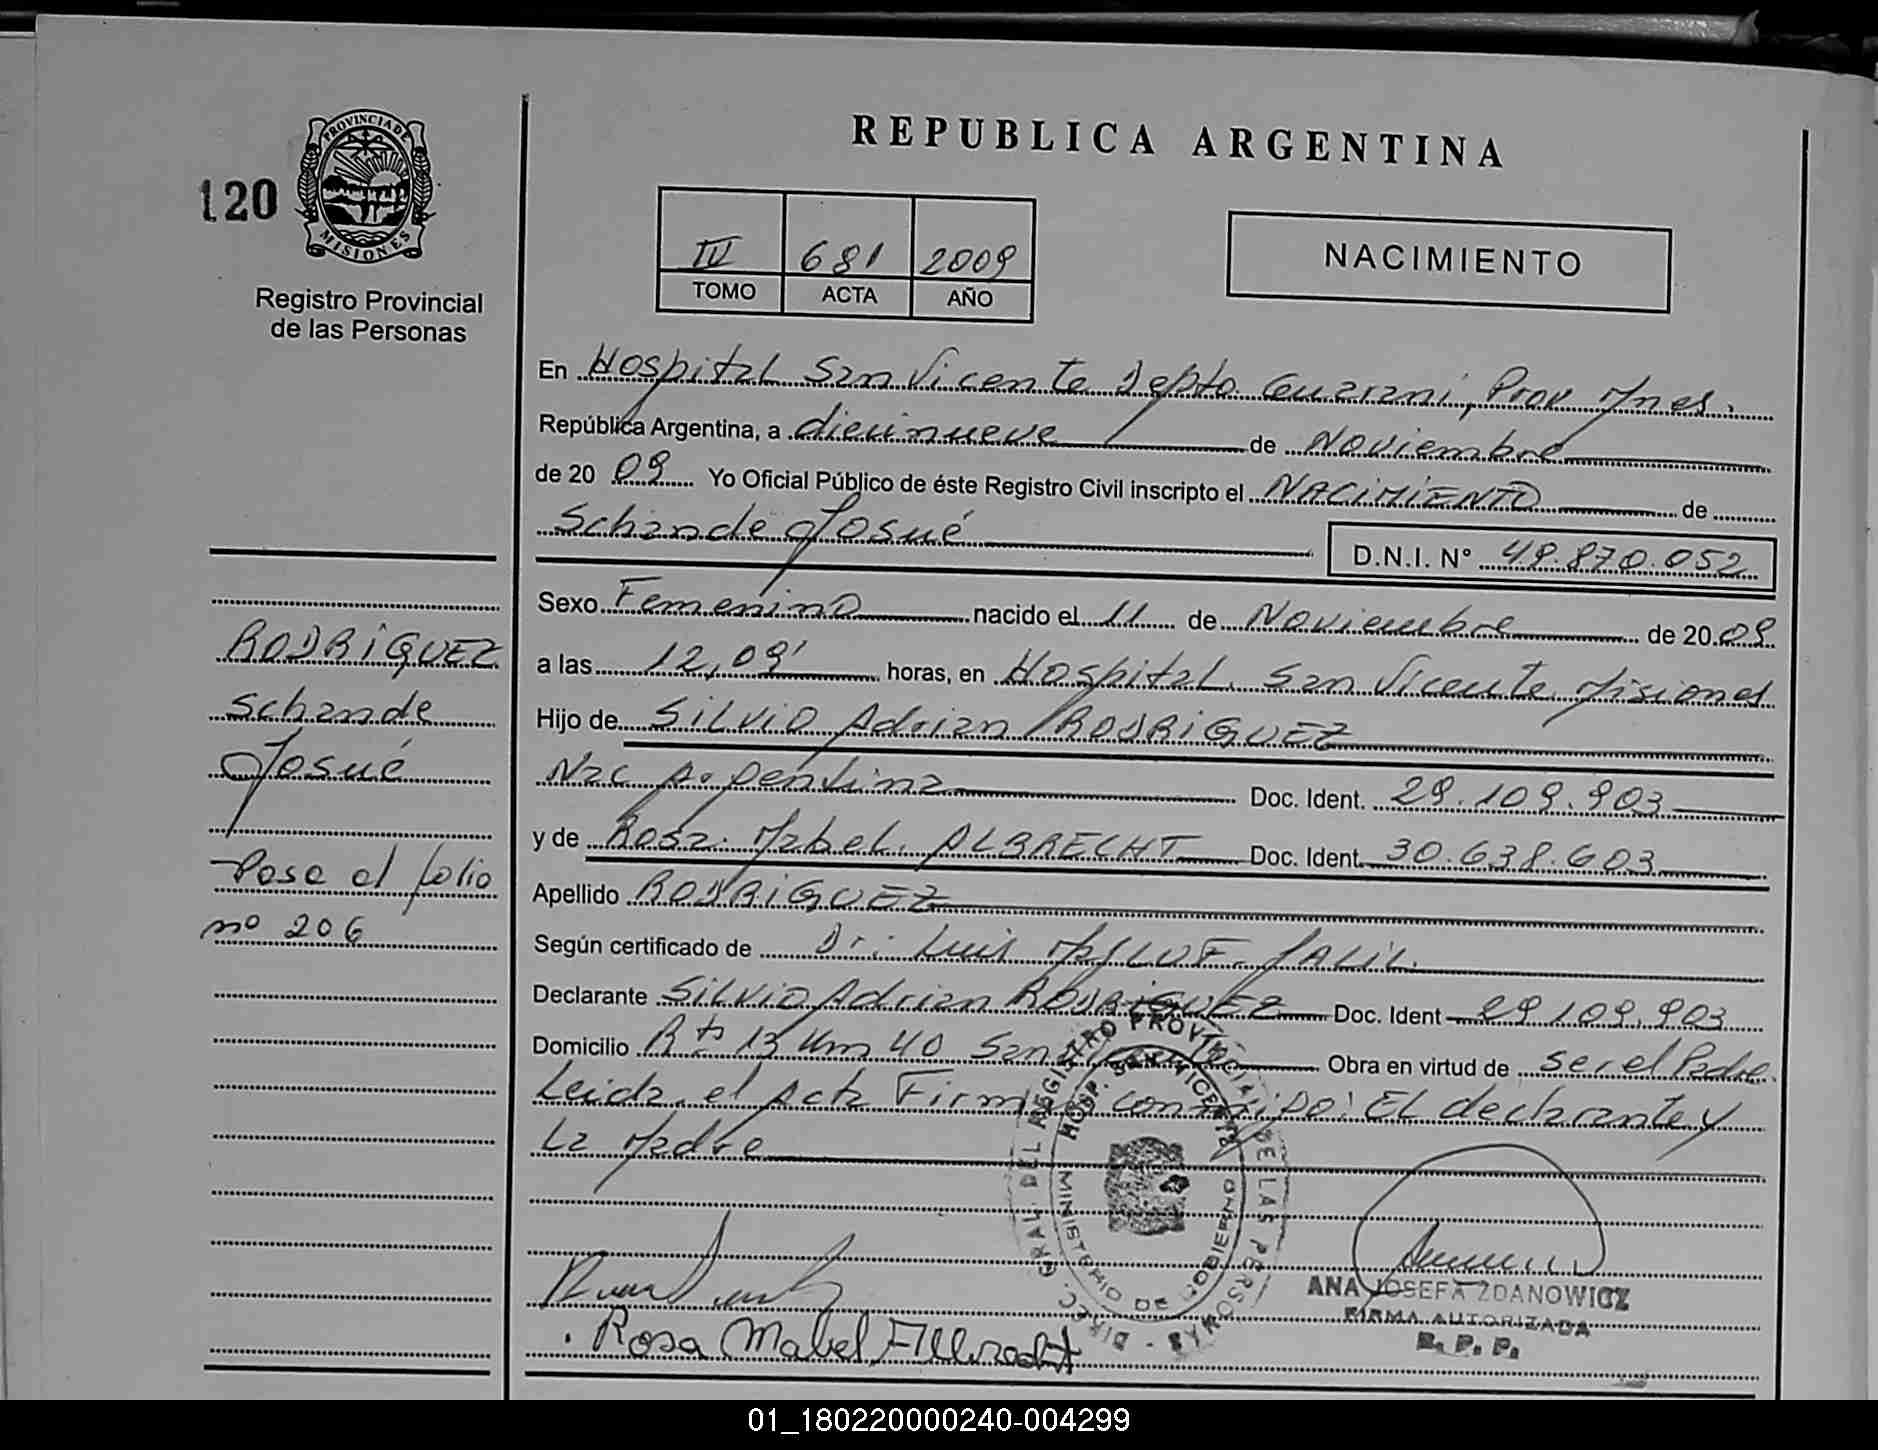 REPUBLICA ARGENTINA
120
PROVINCIA DE
MISIONES
Registro Provincial
de las Personas
IV 681 2009
TOMO ACTA AÑO
NACIMIENTO
En Hospital San Vicente Depto Guarani, Prov Mnes.
República Argentina, a diecinueve de Noviembre
de 20 09 Yo Oficial Público de éste Registro Civil inscripto el NACIMIENTO de
Schande Josué
D.N.I. N° 49.870.052
Sexo Femenino nacido el 11 de Noviembre de 20.09
a las 12,09' horas, en Hospital San Vicente Misiones
Hijo de Silvio Adrian RODRIGUEZ
Nac Argentina Doc. Ident. 29.109.903
y de Rosa Mabel ALBRECHT Doc. Ident. 30.638.603
Apellido RODRIGUEZ
Según certificado de Dr: Luis JALIL
Declarante Silvio Adrian RODRIGUEZ Doc. Ident 29 109.903
Domicilio Rta 13 Km 40 San Vicente Obra en virtud de ser el Padre
Leida el Acta Firman conmigo: EL declarante y
La Madre
RODRIGUEZ
Schande
Josué
Pase al folio
nº 206
DIREC. GRAL. DEL REGISTRO PROVINCIAL DE LAS PERSONAS
HOSP. SAN VICENTE
MINISTERIO DE GOBIERNO
ANA JOSEFA ZDANOWICZ
FIRMA AUTORIZADA
R. P. P.
Rosa Mabel Allbrecht
01_180220000240-004299